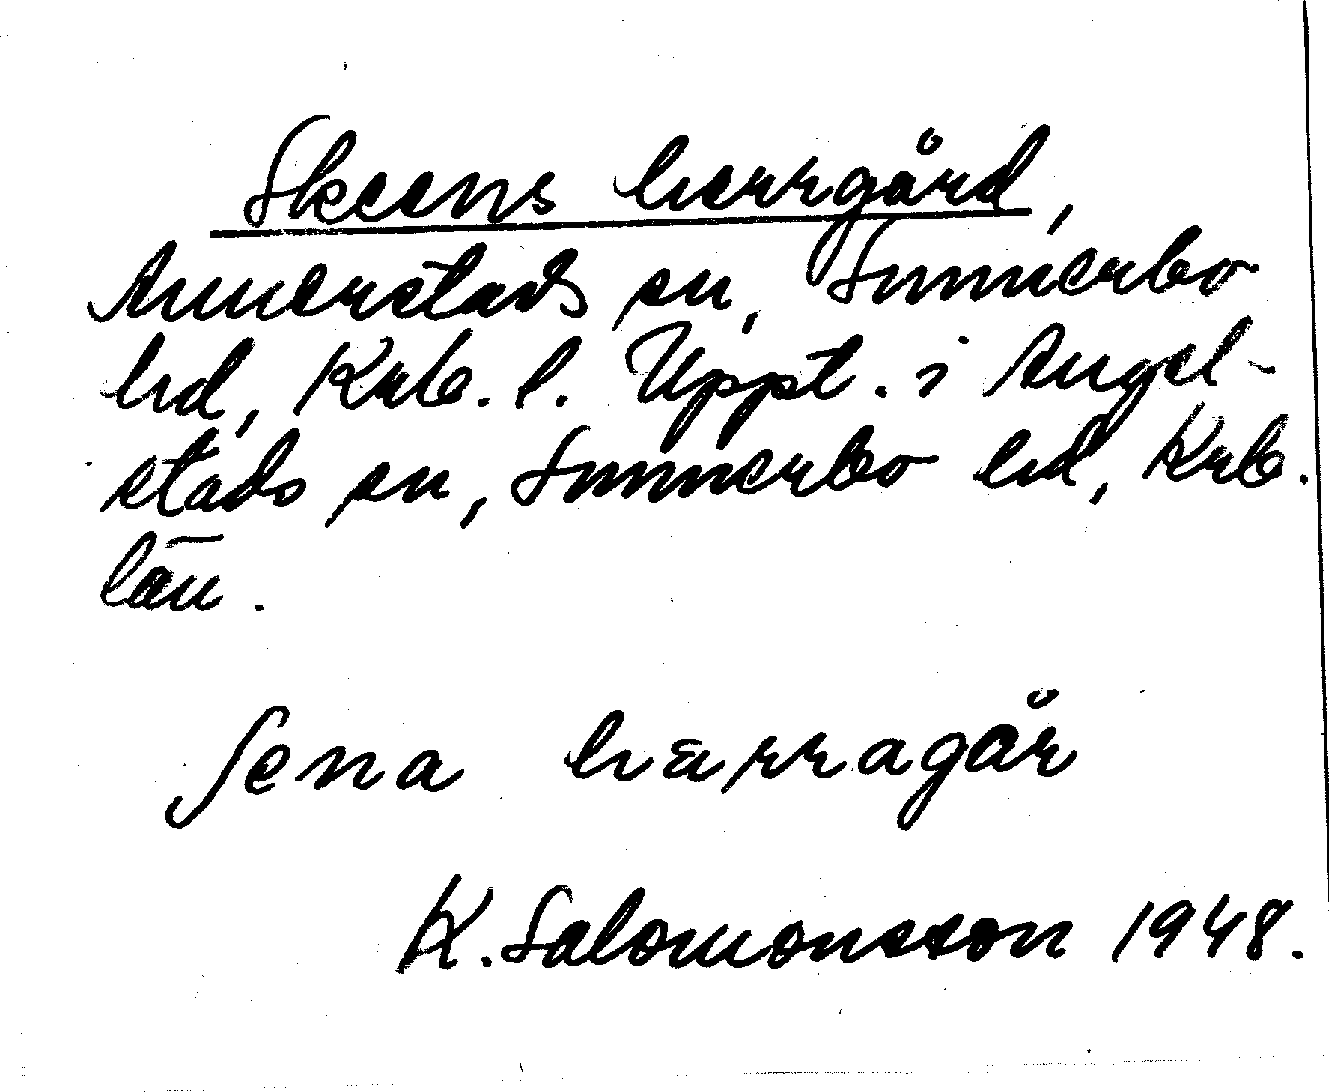 Skeens herrgård,
Annerstads sn, Sunnerbo
hd, Krb. l. Uppt. i Angel-
stads sn, Sunnerbo hd, Krb.
län.
ʃena hærragår
K. Salomonsson 1948.